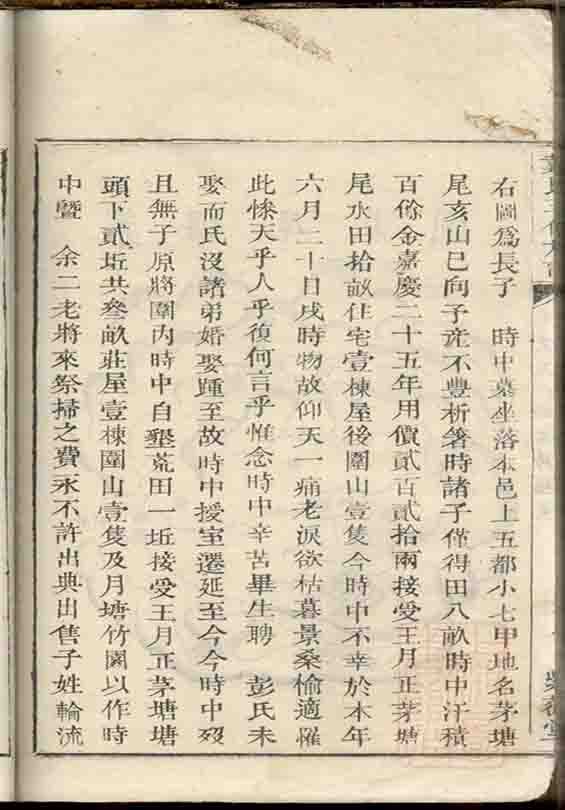 右圖為長子　時中墓坐落本邑上五都小七甲地名茅塘
尾亥山巳向予產不豐析箸時諸子僅得田八畝時中汗積
百餘金嘉慶二十五年用價貳百貳拾兩接受王月正茅塘
尾水田拾畝住宅壹棟屋後圍山壹隻今時中不幸於本年
六月二十日戌時物故仰天一痛老淚欲枯暮景桑榆適罹
此慘天乎人乎復何言乎惟念時中辛苦畢生聘　彭氏未
娶而氏沒諸弟婚娶踵至故時中授室遷延至今今時中歿
且無子原將圍內時中自墾荒田一坵接受王月正茅塘塘
頭下貳坵共叄畝莊屋壹棟圍山壹隻及月塘竹園以作時
中暨　余二老將來祭掃之費永不許出典出售子姓輪流